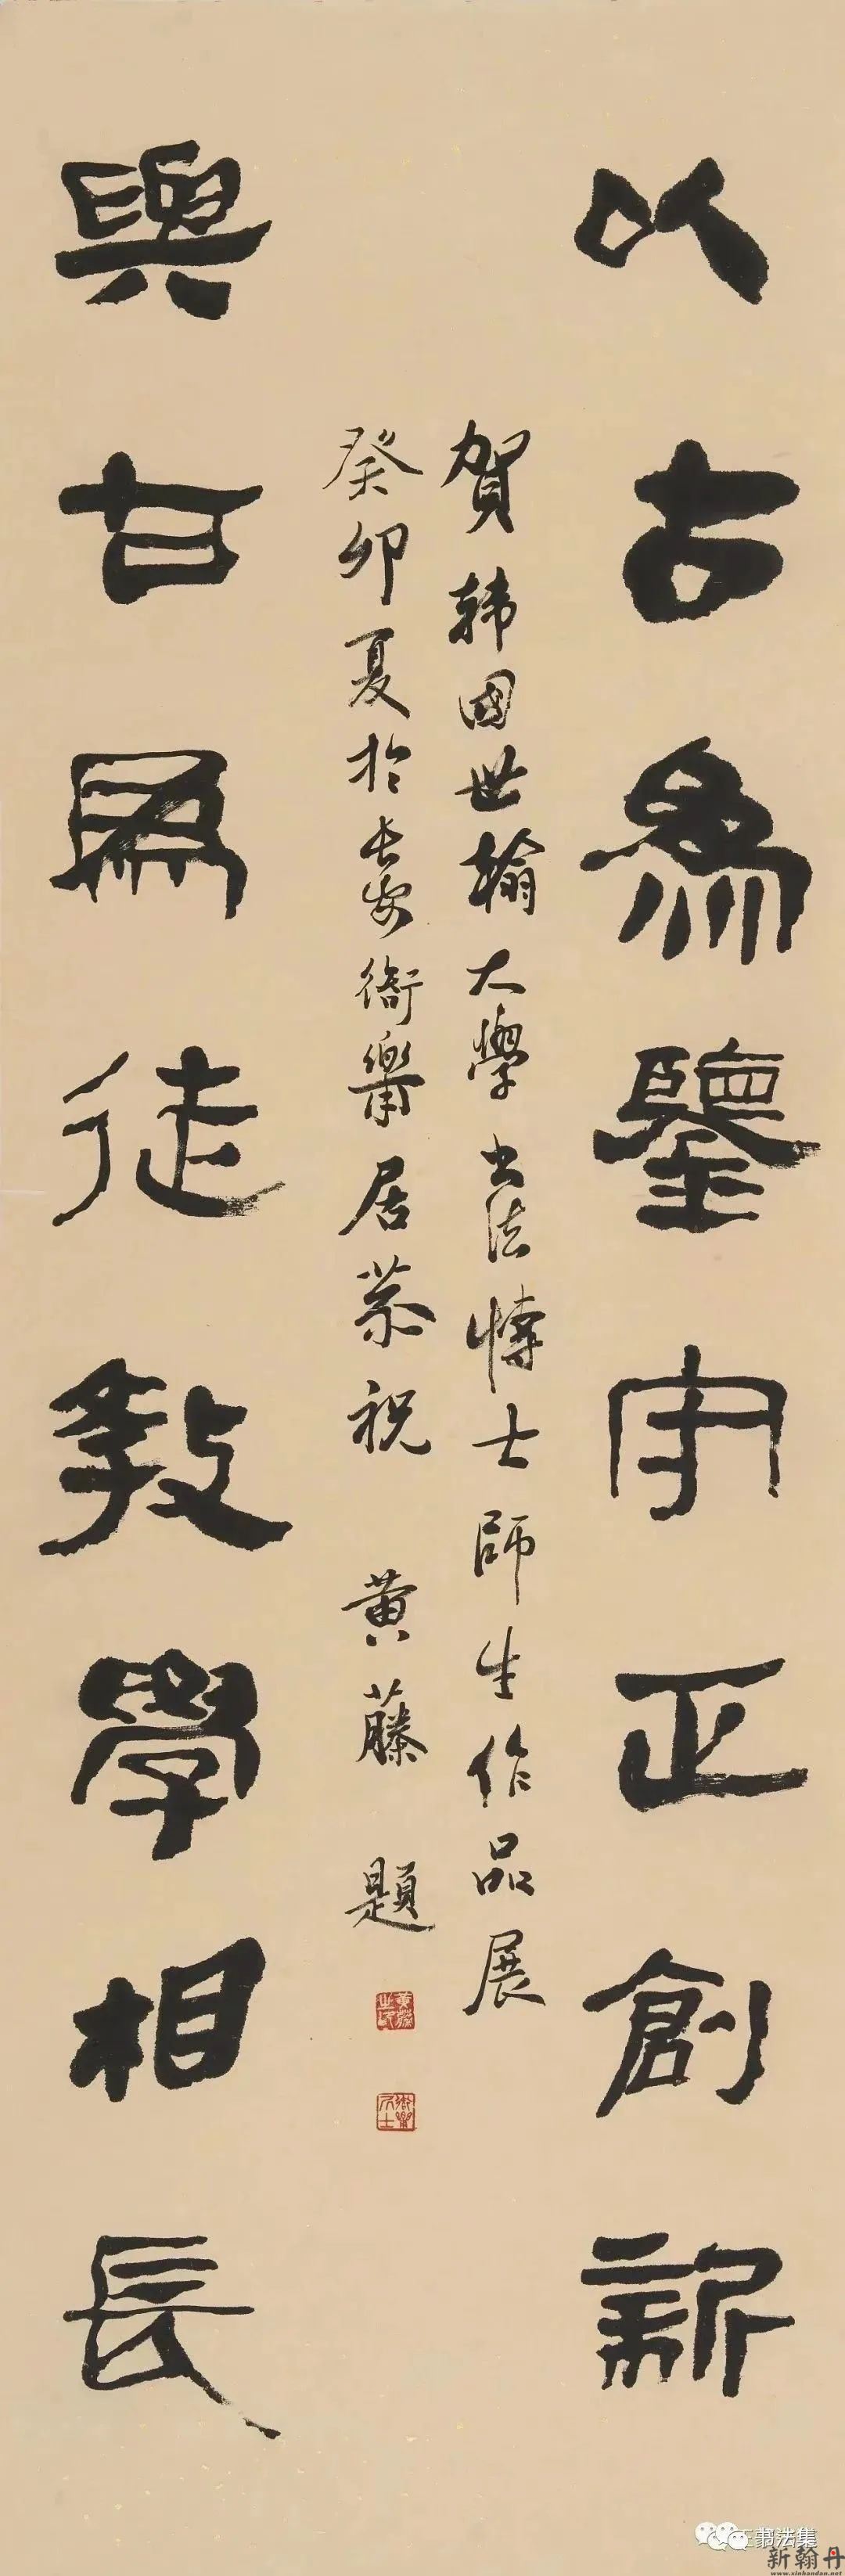 以古為鑒守正創新
賀韓國世翰大學書法博士師生作品展
癸卯夏於長安衙樂居恭祝 黄藤 題
與甘為徒教學相長
王書法集
新翰丹
www.xinhandan.net